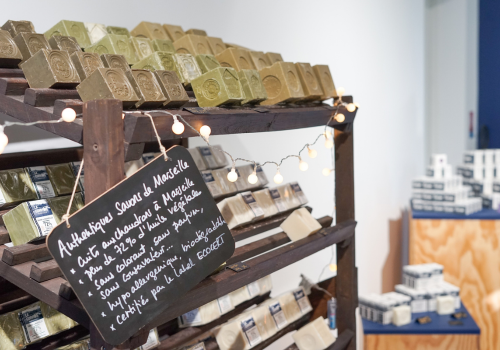 Authentiques Savons de Marseille
* Cuits au chaudron à Marseille
* plus de 72% d'huile végétale
* sans colorant, sans parfum,
sans conservateur...
* hypoallergénique, biodégradable
* certifié par le label ECOCERT